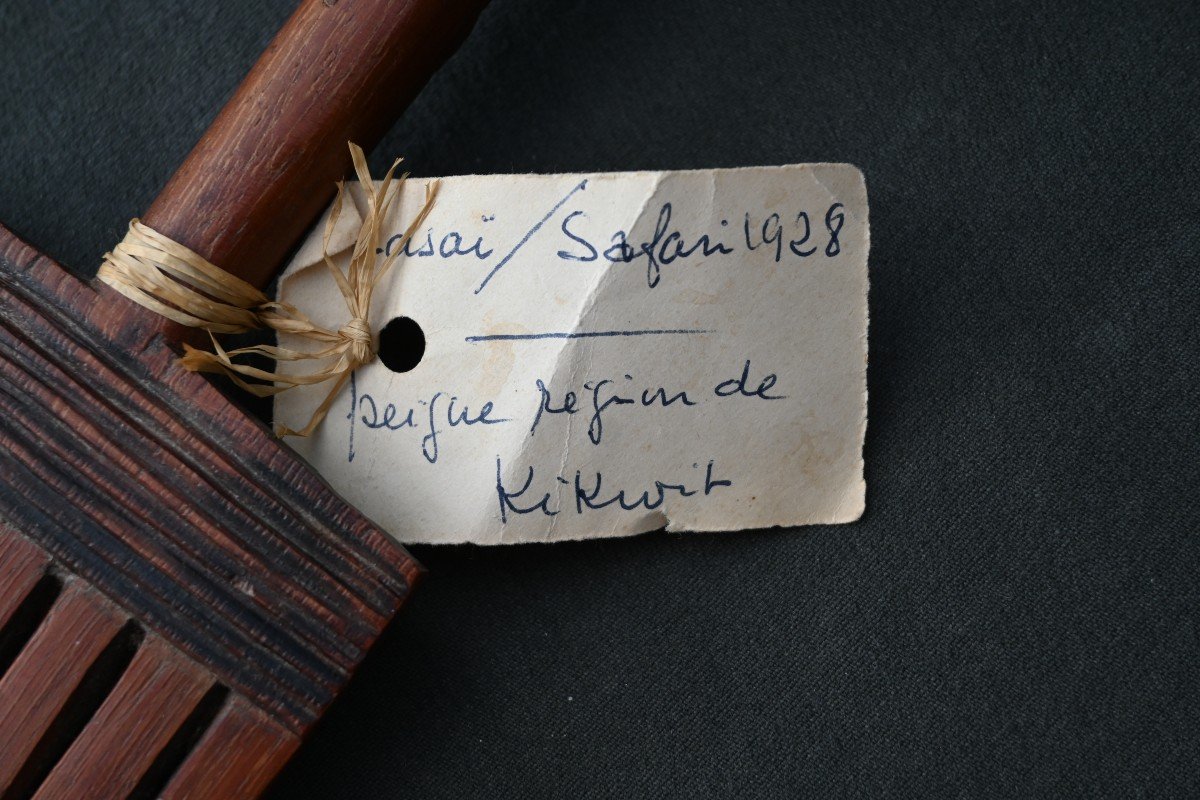 / Safari 1928
peigne région de
Kikwit